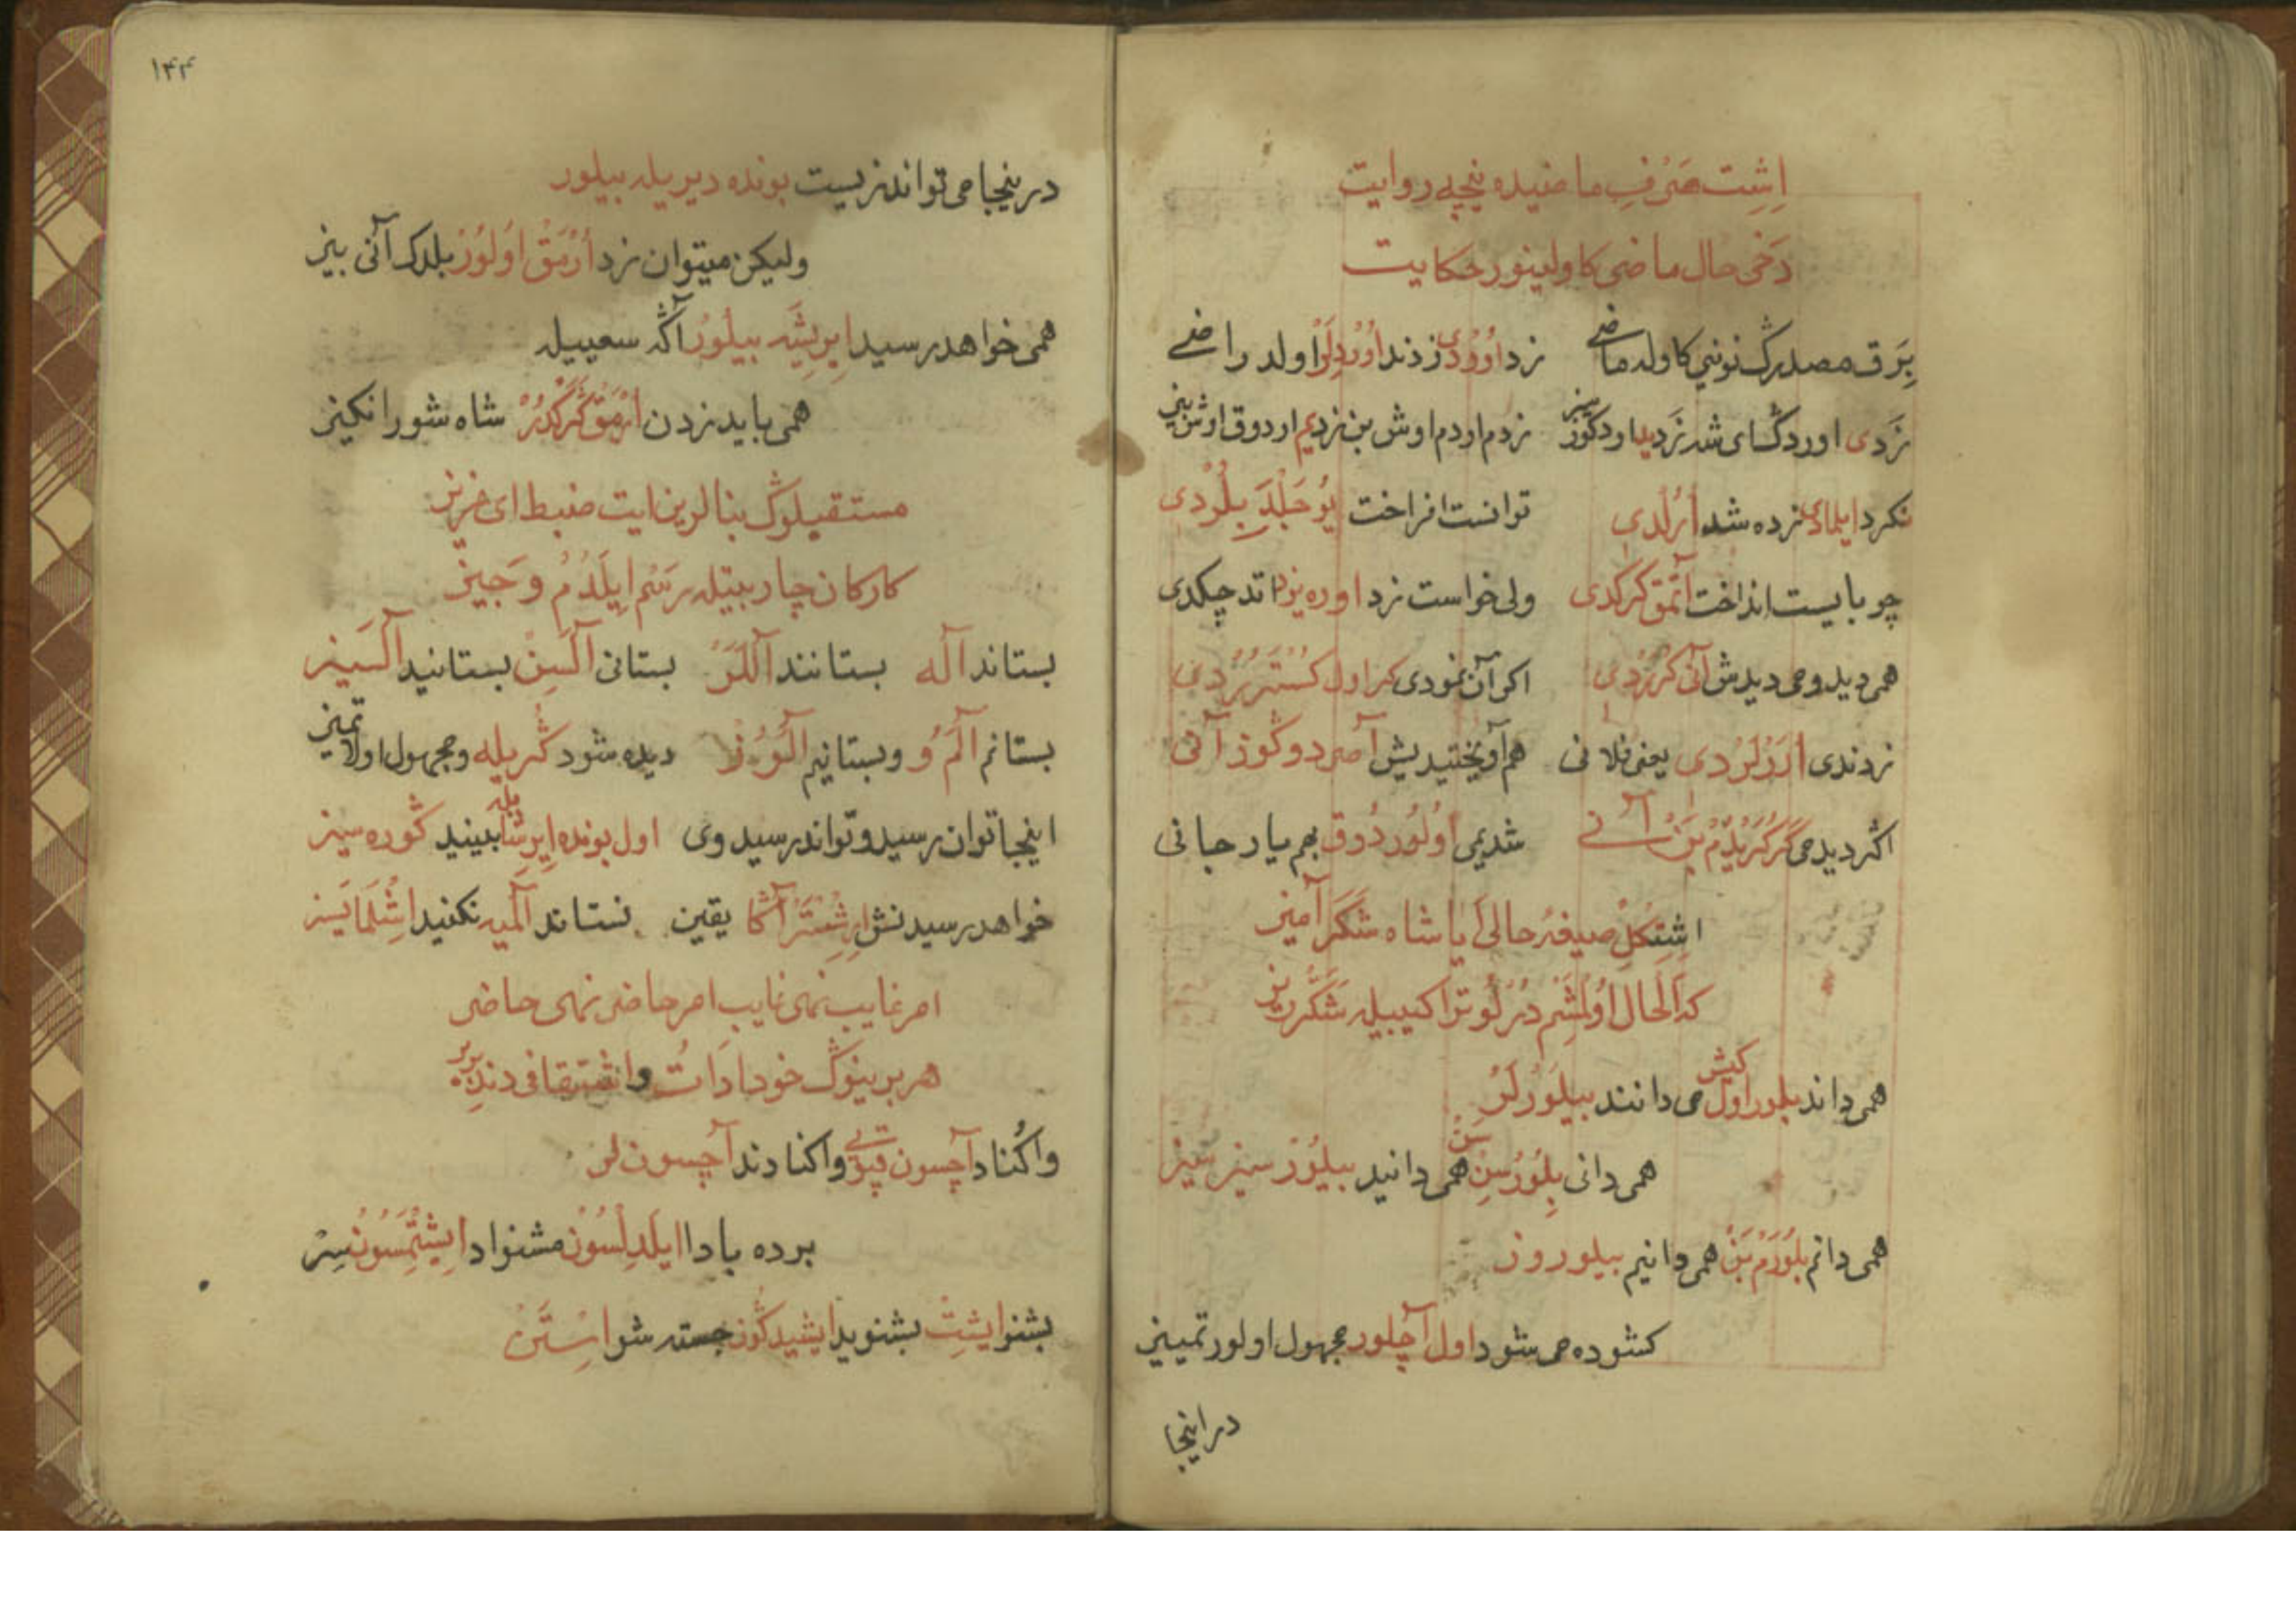 اِشِت صَرْفِ ماضیده نیچیه روایت
دَخی حال ماضی کاولینور حکایت
بِرَق مصدرڭ نونی کاوله ماضی زد اوُرْدی زدند اوُرْدِلَرْ اولد راضی
زَدی اوردڭ ای شه زَدید اوردکوز سیز زدم اوردم اوش بن زدیم اوردوق اوش بیز
نکرد ایلمادی زده شد اُرُلْدی توانست افراخت یوُجَلْدَ بِلُرْدی
چو بایست انداخت آتْمَق کَرَکدی ولی خواست زد اوره یزد اند چکدی
همی دید و می دیدش آنی کُرُرْدی اکر آن نمودی کر اول کُسْتَرُرْدی
زدندی اُرَرْلَرْدی یعنی فلانی هم آویختیدیش آصردوکوز آنی
اکر دیدمی کَر کُرَیْدُمْ بَنْ آنی شدیمی اوُلُوردُوق بهم یار جانی
اِشِتکِلْ صیغهٔ حالی اَیا شاه شَکَر آمیز
که اَلحال اوُلْمَشَم دُرْلُو تراکیبیله شَکَّر ریز
همی داند بلور اول کیش می دانند بیلوُرْلَرْ
همی دانی بِلُوُرْسِن سَنْ همی دانید بیلُوُرْسیز سیز
همی دانم بلُوُرَمْ بَنْ همی دانیم بیلوروز
کشوده می شود اول آچلور مجهول اولور تمییز
در اینجا
۱۴۴
درینجا می تواند زیست بونده دیریله بیلور
ولیکن میتوان زد اُرْمَقْ اوُلوُرْ بلدک آنی بیز
همی خواهد رسید اِیرِیشَه بیلُورْ آڭه سعییله
همی باید زدن اُرْمَق کَرَکْدُرْ شاه شورانکیز
مستقبلوڭ بنالرین ایت ضبط ای عزیز
کارکان چار بیتله رَسْم ایلَدُمْ وَجیز
بستاند آله بستانند آلَلَرْ بستانی آلَسِنْ بستانید آلَسیز
بستانم آلَمْ وُ وبستانیم آلَوُوُزْ دیده شود کُریله ومجهول اولا تمیز
اینجا توان رسید و تواند رسید وی اول بونده اِیرِشَا بیله بینید کوره سیز
خواهد رسیدنش اِرِشِسَرْ آڭا یقین نستاند آلمیه نکنید اِشْلَمایَسیز
امر غایب نهی غایب امر حاضر نهی حاضر
هر برینوڭ خود اَدَاتُ واشتقاقی دندبربر
واکناد آچسون قپویی واکنادند آچسونلر
برده بادا ایلَدِلْسُون مشنواد اِیشِتْمَسُونْ سِرْ
بشنو ایشِتْ بشنوید ایشیدکوز جسته شو اِسْتَنْ